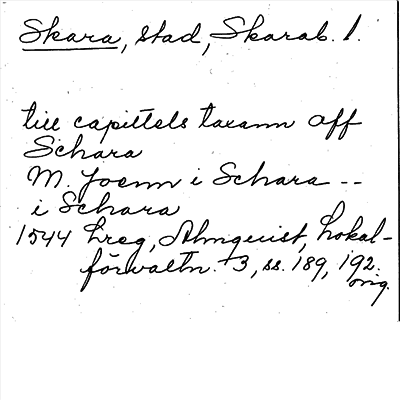 Skara, stad, Skarab. l.
till capittels taxann off
Schara
M. Joenn i Schara --
i Schara
1544 hreg, Almquist, Lokal-
förvaltn. +3, ss. 189, 192.
orig.